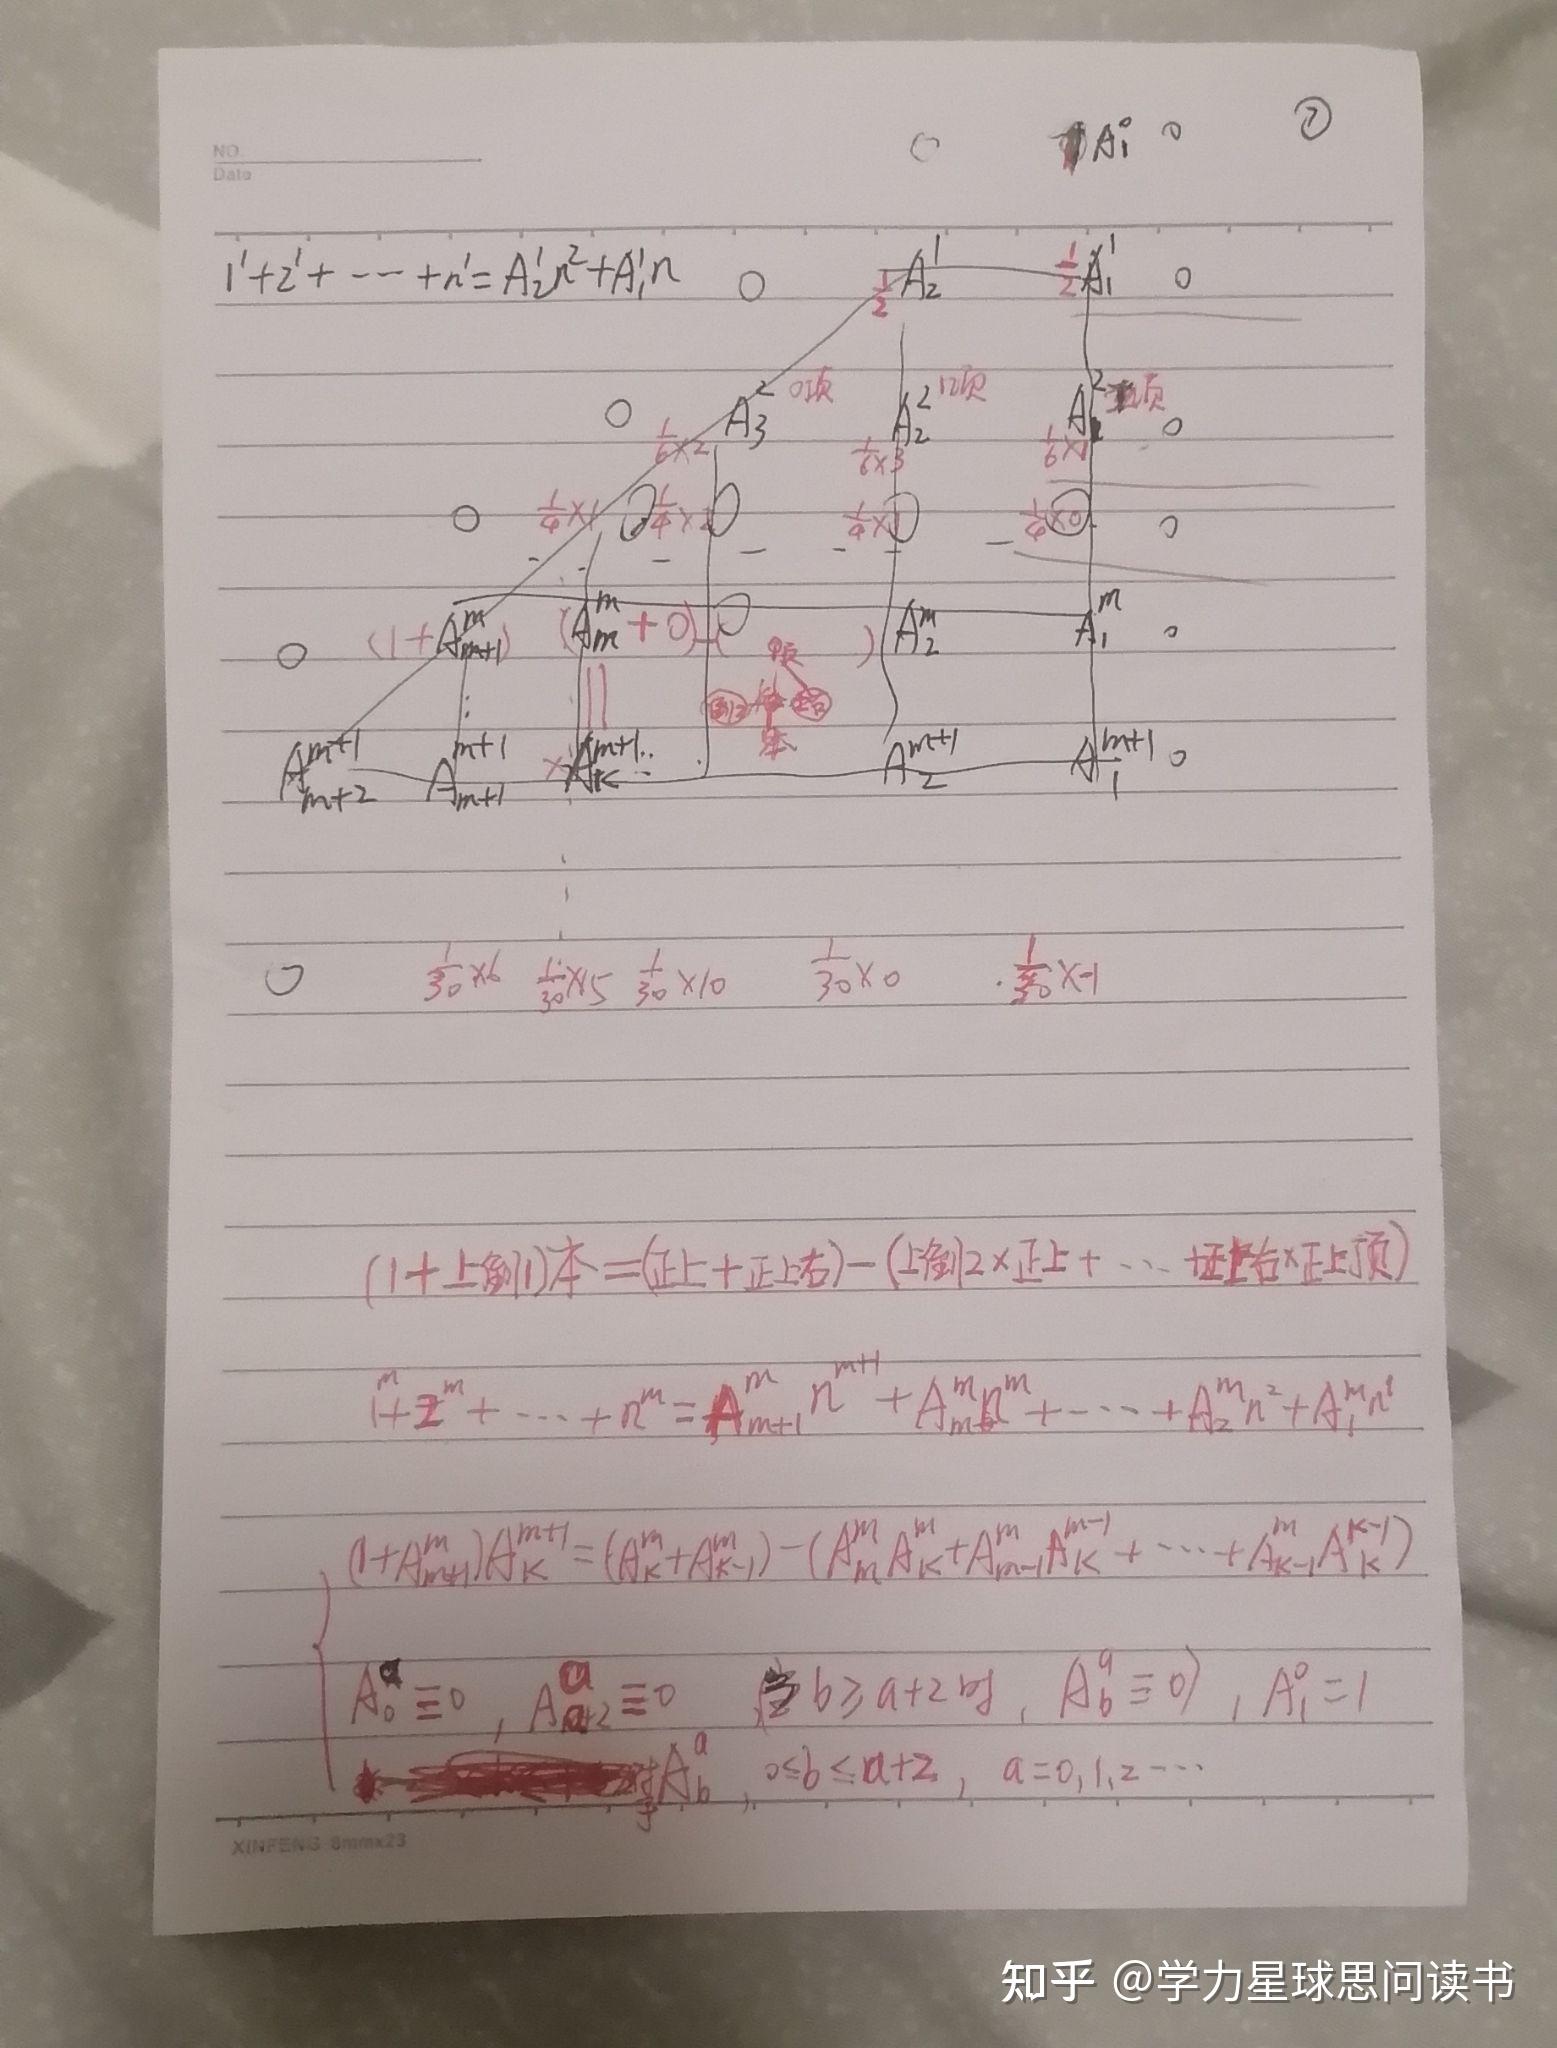 0 A₁⁰ 0 ⑦
NO.
Date
1¹+2¹+ --- +n¹=A₂¹n²+A₁¹n 0 1/2 A₂¹ 1/2 A₁¹ 0
0 A₃² 0项 A₂² 1项 A² 项 0
1/6×2 1/6×3 1/6×1
0 1/4×1 1/4×2 1/4×1 1/4×0 0
0 (1+Aₘ₊₁ᵐ) (Aₘᵐ+0)-( ) A₂ᵐ A₁ᵐ 0
顶
本
Aₘ₊₂ᵐ⁺¹ Aₘ₊₁ᵐ⁺¹ × Aₖᵐ⁺¹ A₂ᵐ⁺¹ A₁ᵐ⁺¹ 0
0 1/30×6 1/30×15 1/30×10 1/30×0 1/30×-1
(1+上倒1)本=(正上+正上右)-(上倒2×正上+…+正上右×正上顶)
1ᵐ+2ᵐ+…+nᵐ=Aₘ₊₁ᵐnᵐ⁺¹+Aₘᵐnᵐ+…+A₂ᵐn²+A₁ᵐn¹
(1+Aₘ₊₁ᵐ)Aₖᵐ⁺¹=(Aₖᵐ+Aₖ₋₁ᵐ)-(AₘᵐAₖᵐ+Aₘ₋₁ᵐAₖᵐ⁻¹+…+Aₖ₋₁ᵐAₖᵏ⁻¹)
A₀ᵃ≡0, Aₐ₊₂ᵃ≡0 (当b≥a+2时, A_bᵃ≡0), A₁⁰=1
对于A_bᵃ, 0≤b≤a+2, a=0,1,2…
XINFENG 8mmx23
知乎 @学力星球思问读书